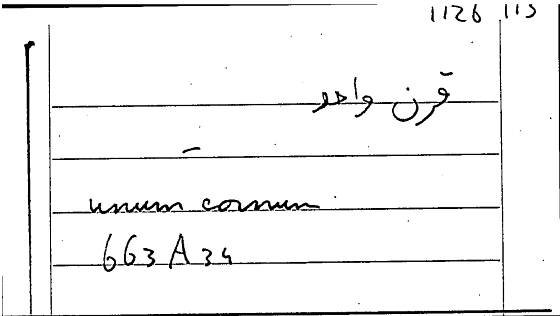 1126 113
قرن واحد
unum cornum
663A34